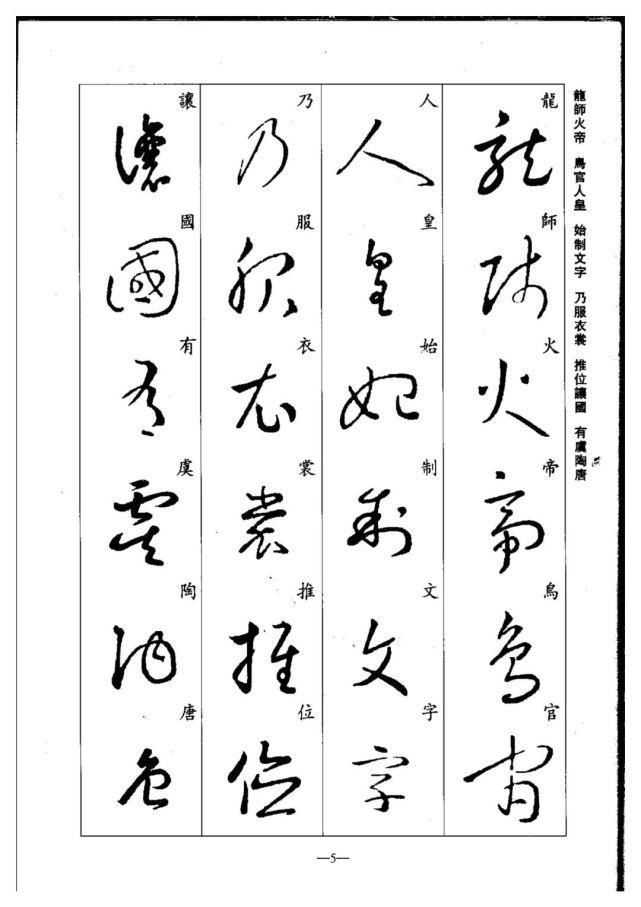 龍師火帝 鳥官人皇 始制文字 乃服衣裳 推位讓國 有虞陶唐
龍師火帝鳥官
人皇始制文字
乃服衣裳推位
讓國有虞陶唐
—5—